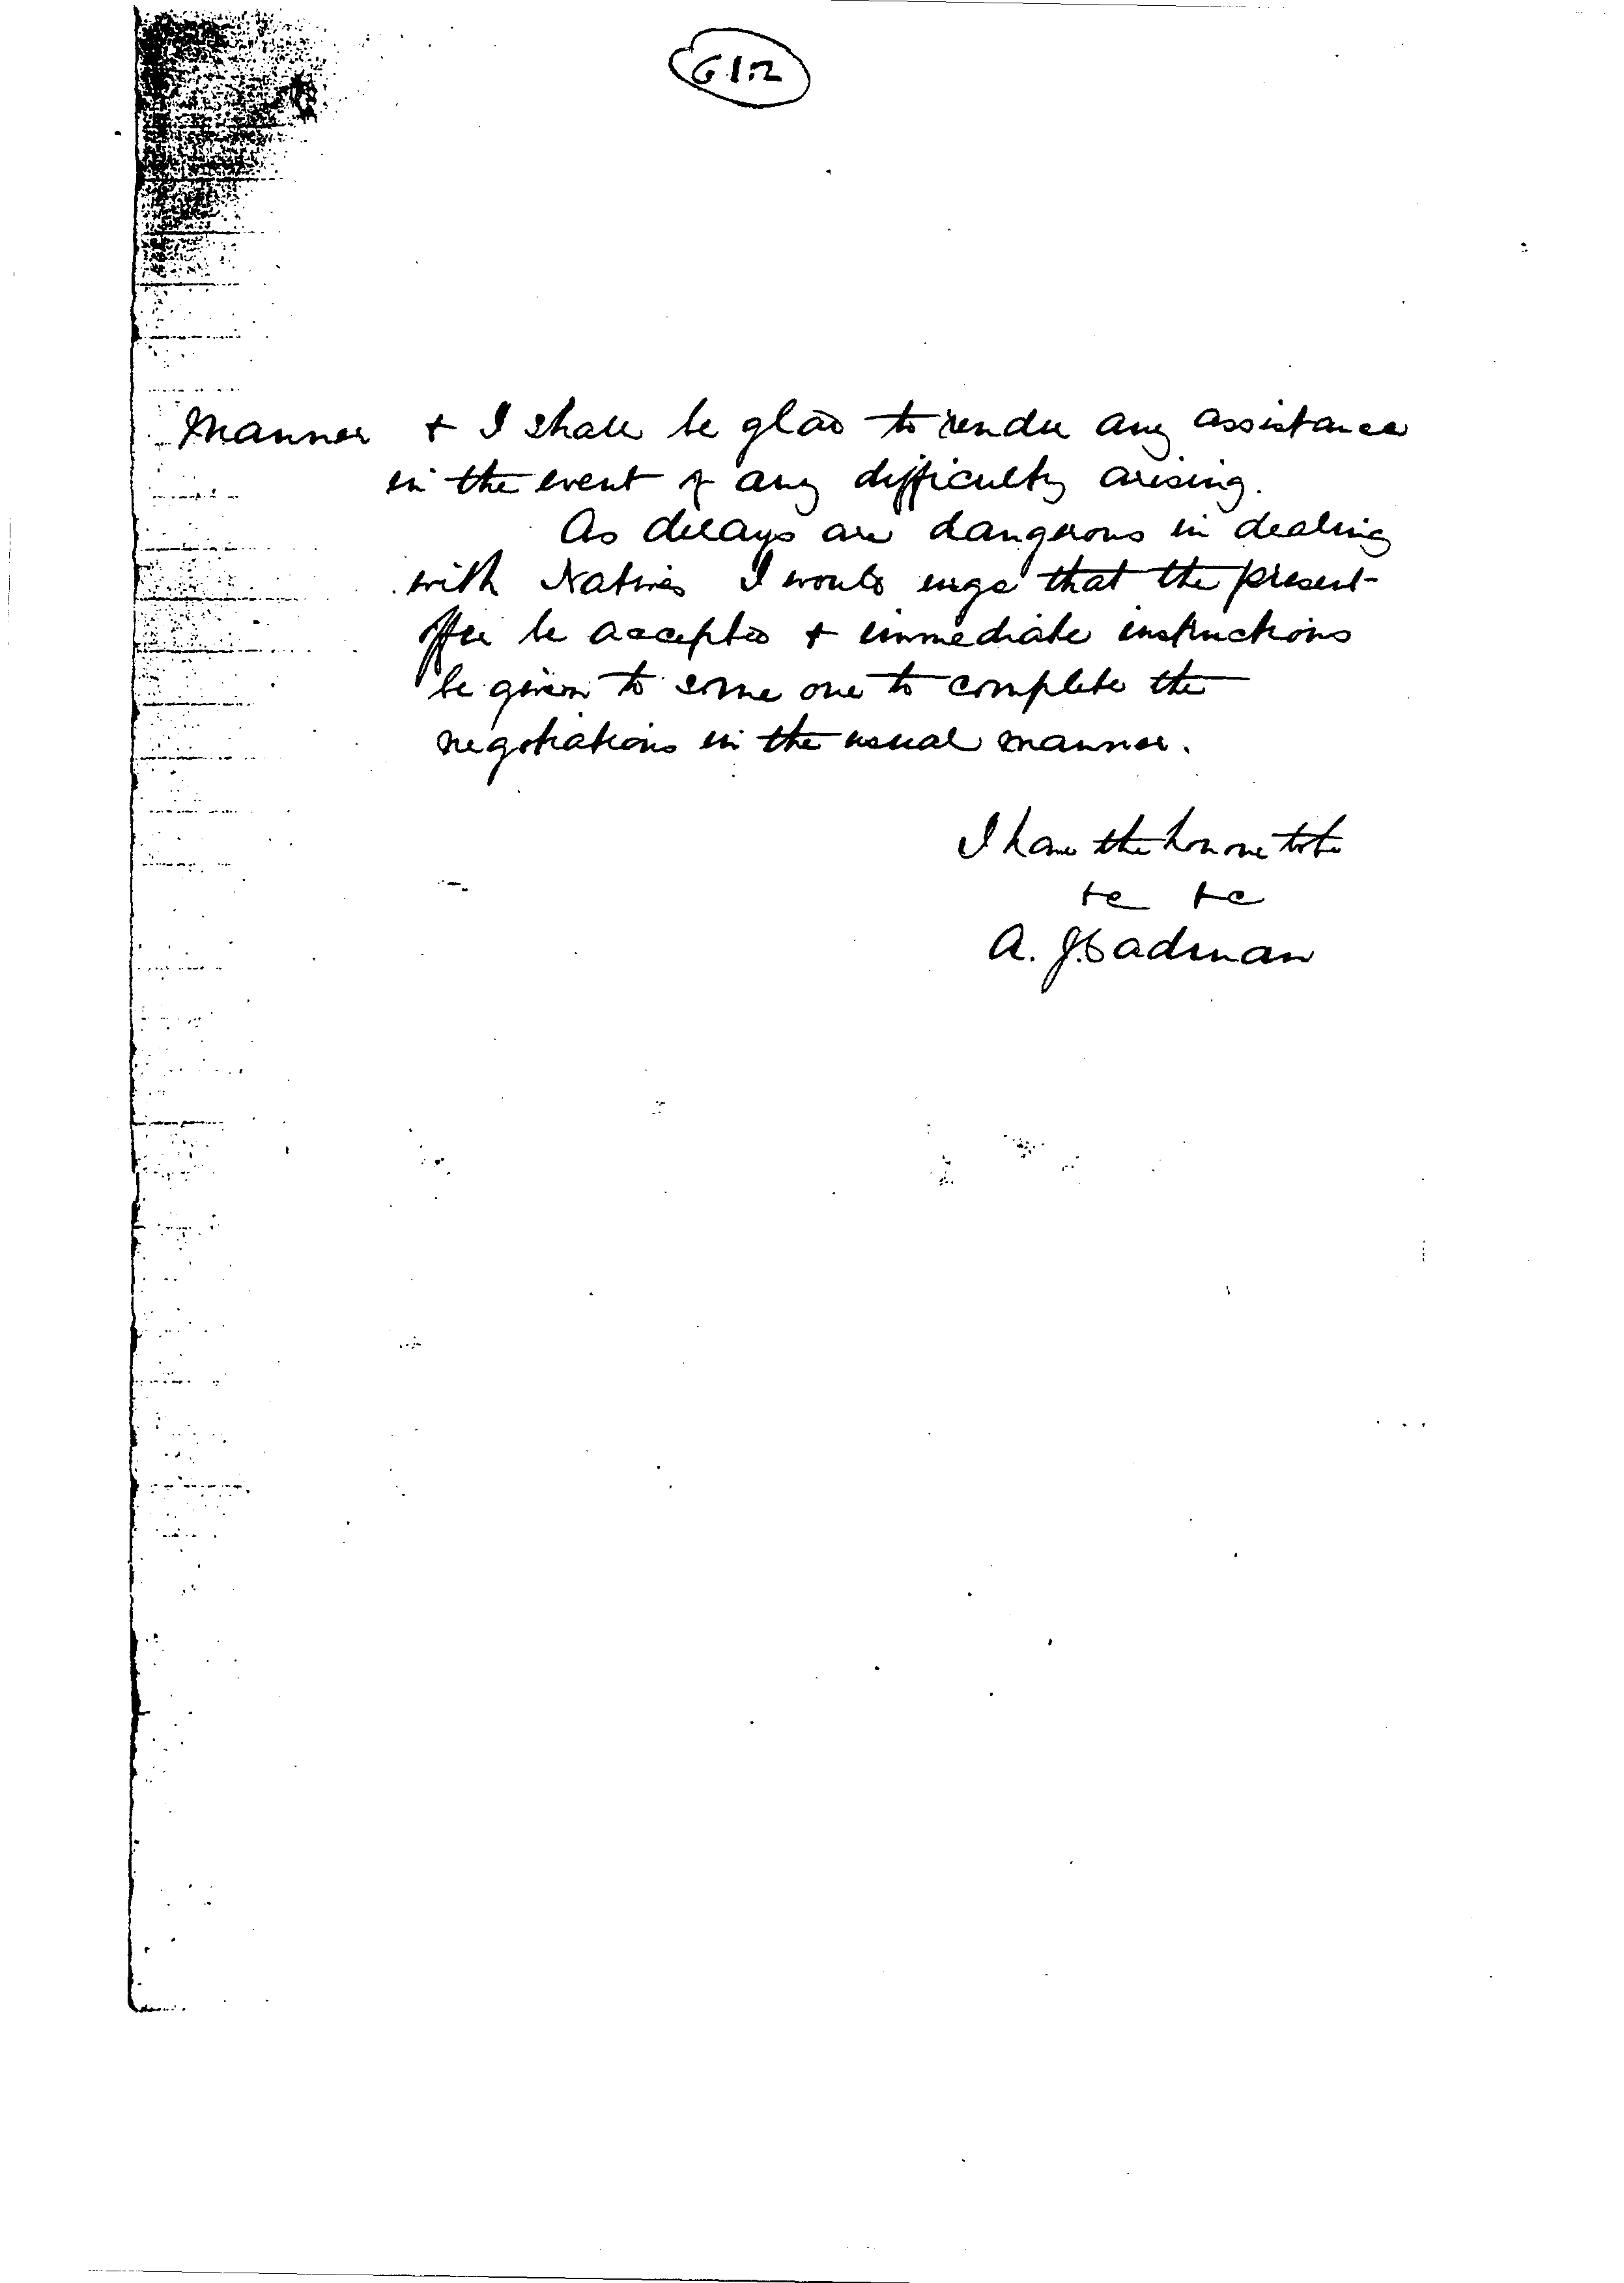 G1.2
Manner & I shall be glad to render any assistance
in the event of any difficulty arising.
As delays are dangerous in dealing
with Natives I would urge that the present
offer be accepted & immediate instructions
be given to some one to complete the
negotiations in the usual manner.
I have the honour to be
&c &c
A. J. Cadman